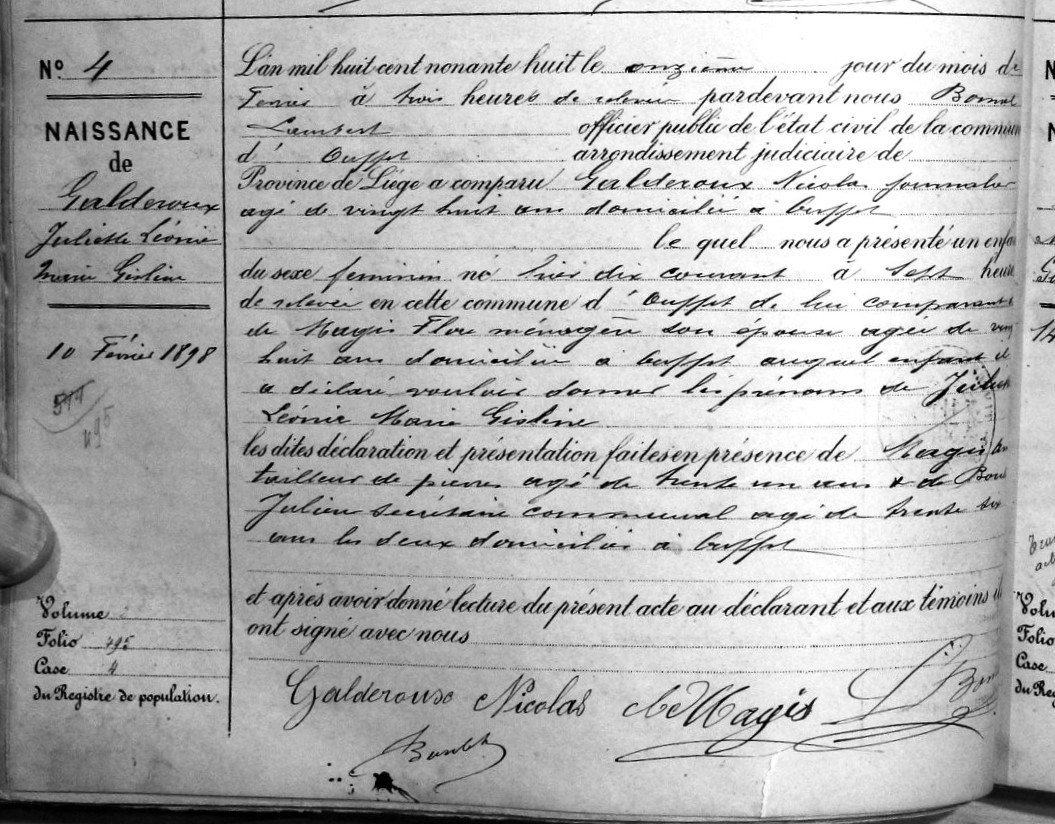 Nº 4
NAISSANCE
de
Galderoux
Juliette Léonie
Marie Gisline
10 Février 1898
Volume
Folio 495
Case 4
du Registre de population.
L'an mil huit cent nonante huit le onzième jour du mois de
Fevrier à trois heures de relevée pardevant nous
Lambert officier public de l'état civil de la commun
d' Ouffet arrondissement judiciaire de
Province de Liége a comparu Galderoux Nicolas journalier
agé de vingt huit ans domicilié à Ouffet
le quel nous a présenté un enfan
du sexe feminin né hier dix courant à sept heure
de relevée en cette commune d' Ouffet de lui comparant
de Magis Flore ménagère son épouse agée de ving
huit ans domiciliée à Ouffet auquel enfant il
a déclaré vouloir donner les prénoms de Juliet
Léonie Marie Gisline
les dites déclaration et présentation faites en présence de Magis
tailleur de pierres agé de trente un ans & de
Julien secrétaire communal agé de trente six
ans les deux domiciliés à Ouffet
et après avoir donné lecture du présent acte au déclarant et aux témoins il
ont signé avec nous
Galderoux Nicolas Magis